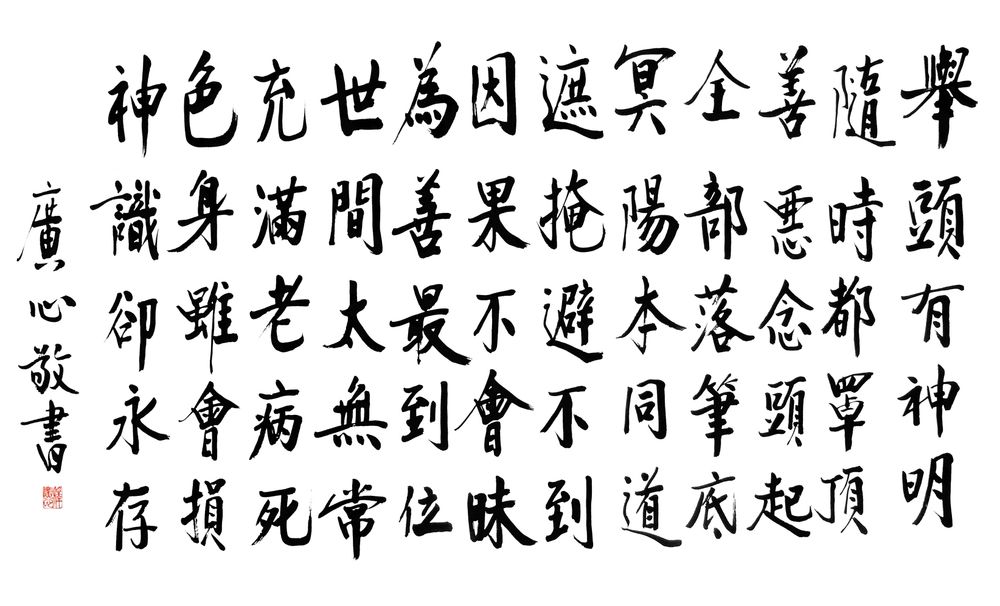 舉頭有神明
隨時都罩頂
善惡念頭起
全部落筆底
冥陽本同道
遮掩避不到
因果不會昧
為善最到位
世間太無常
充滿老病死
色身雖會損
神識卻永存
廣心敬書